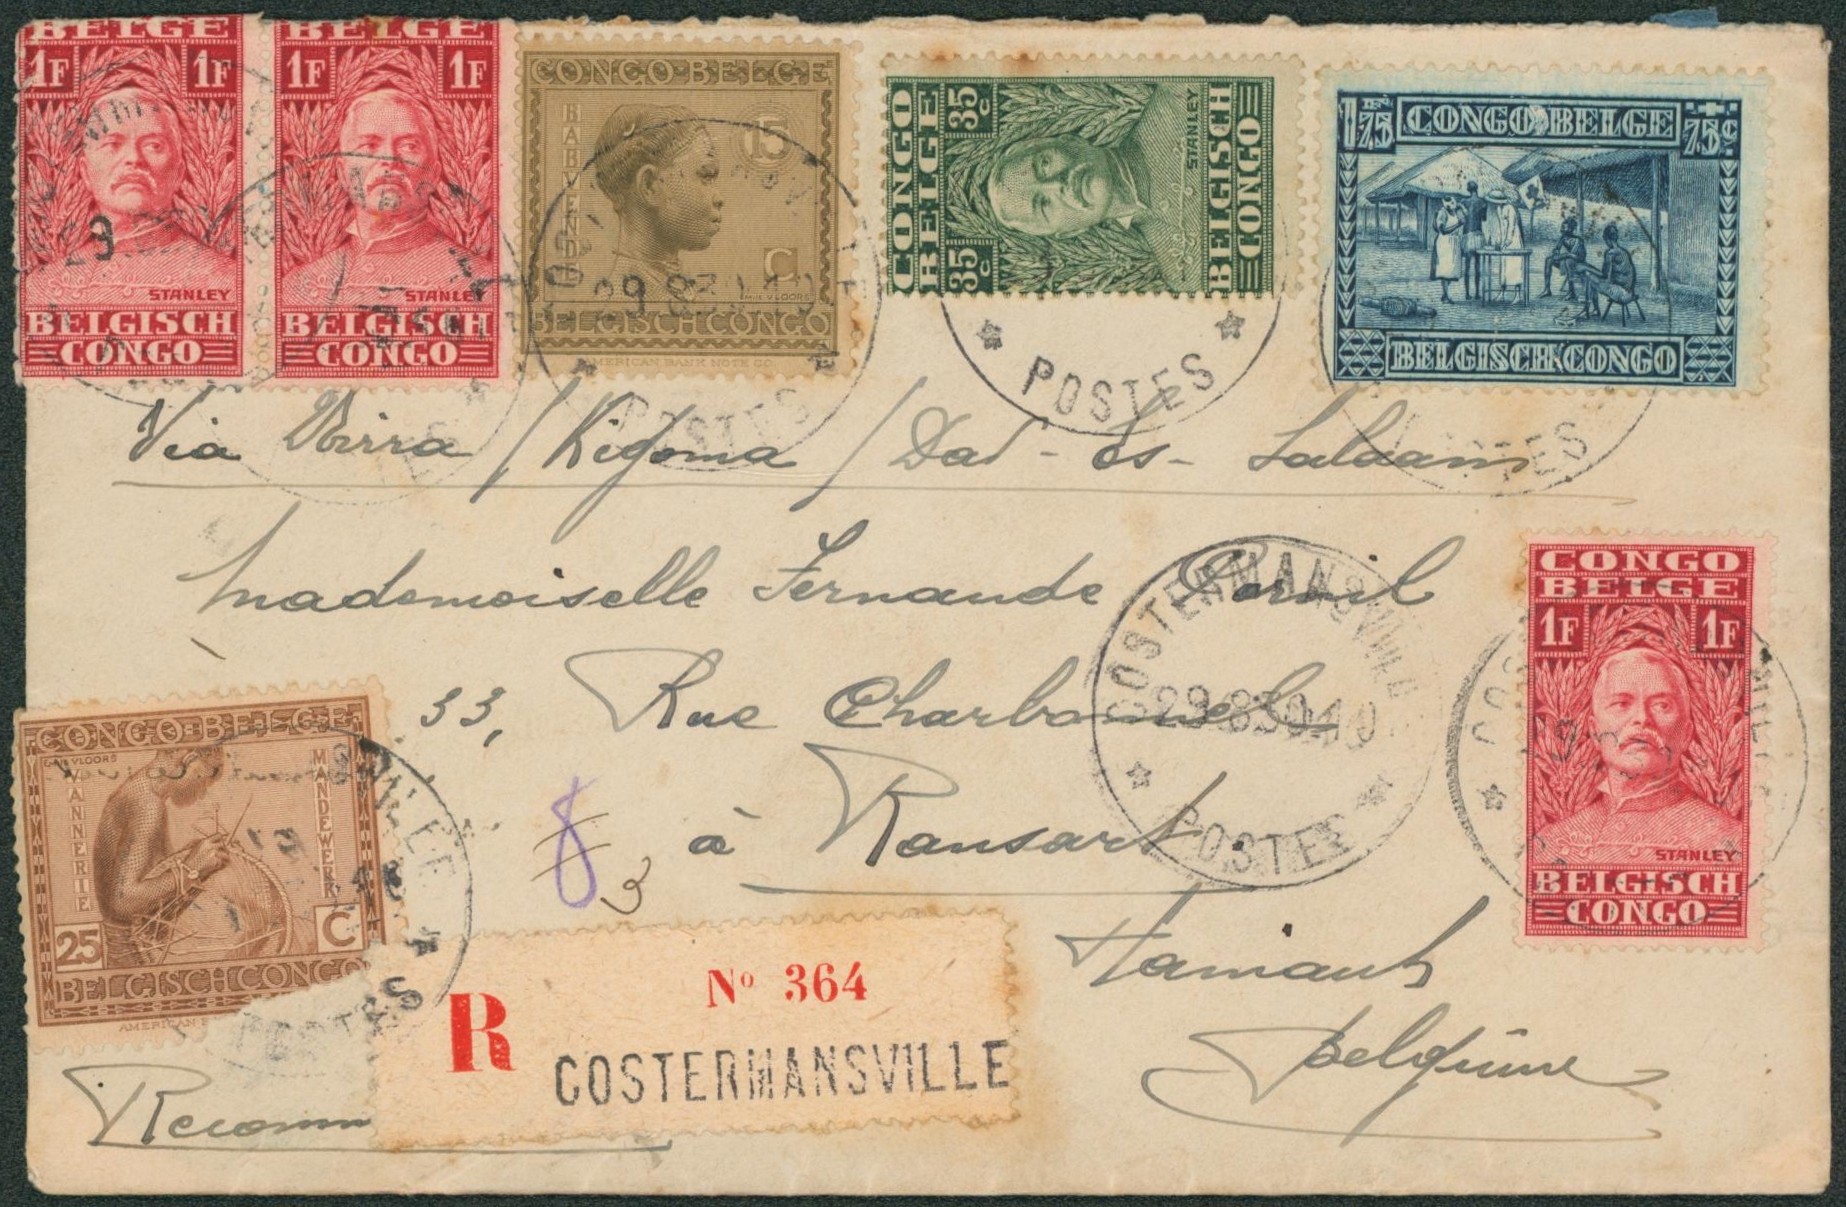 BELGE
1F 1F
STANLEY
BELGISCH
CONGO
BELGE
1F 1F
STANLEY
BELGISCH
CONGO
CONGO BELGE
BABWENDE
15
C
BELGISCH CONGO
AMERICAN BANK NOTE CO.
CONGO
BELGE
35c 35c
STANLEY
BELGISCH
CONGO
1F75 CONGO BELGE +75c
BELGISCH CONGO
POSTES
POSTES
Via / Kigoma / Dar-es-Salaam
Mademoiselle Fernande
33, Rue
à Ransart.
Hainaut
Belgique
COSTERMANSVILLE
29-830-10
POSTES
CONGO
BELGE
1F 1F
STANLEY
BELGISCH
CONGO
CONGO BELGE
EMILE VLOORS
VANNERIE
MANDEWERK
25 C
BELGISCH CONGO
AMERICAN
POSTES
8
3
R
No 364
COSTERMANSVILLE
Recomm